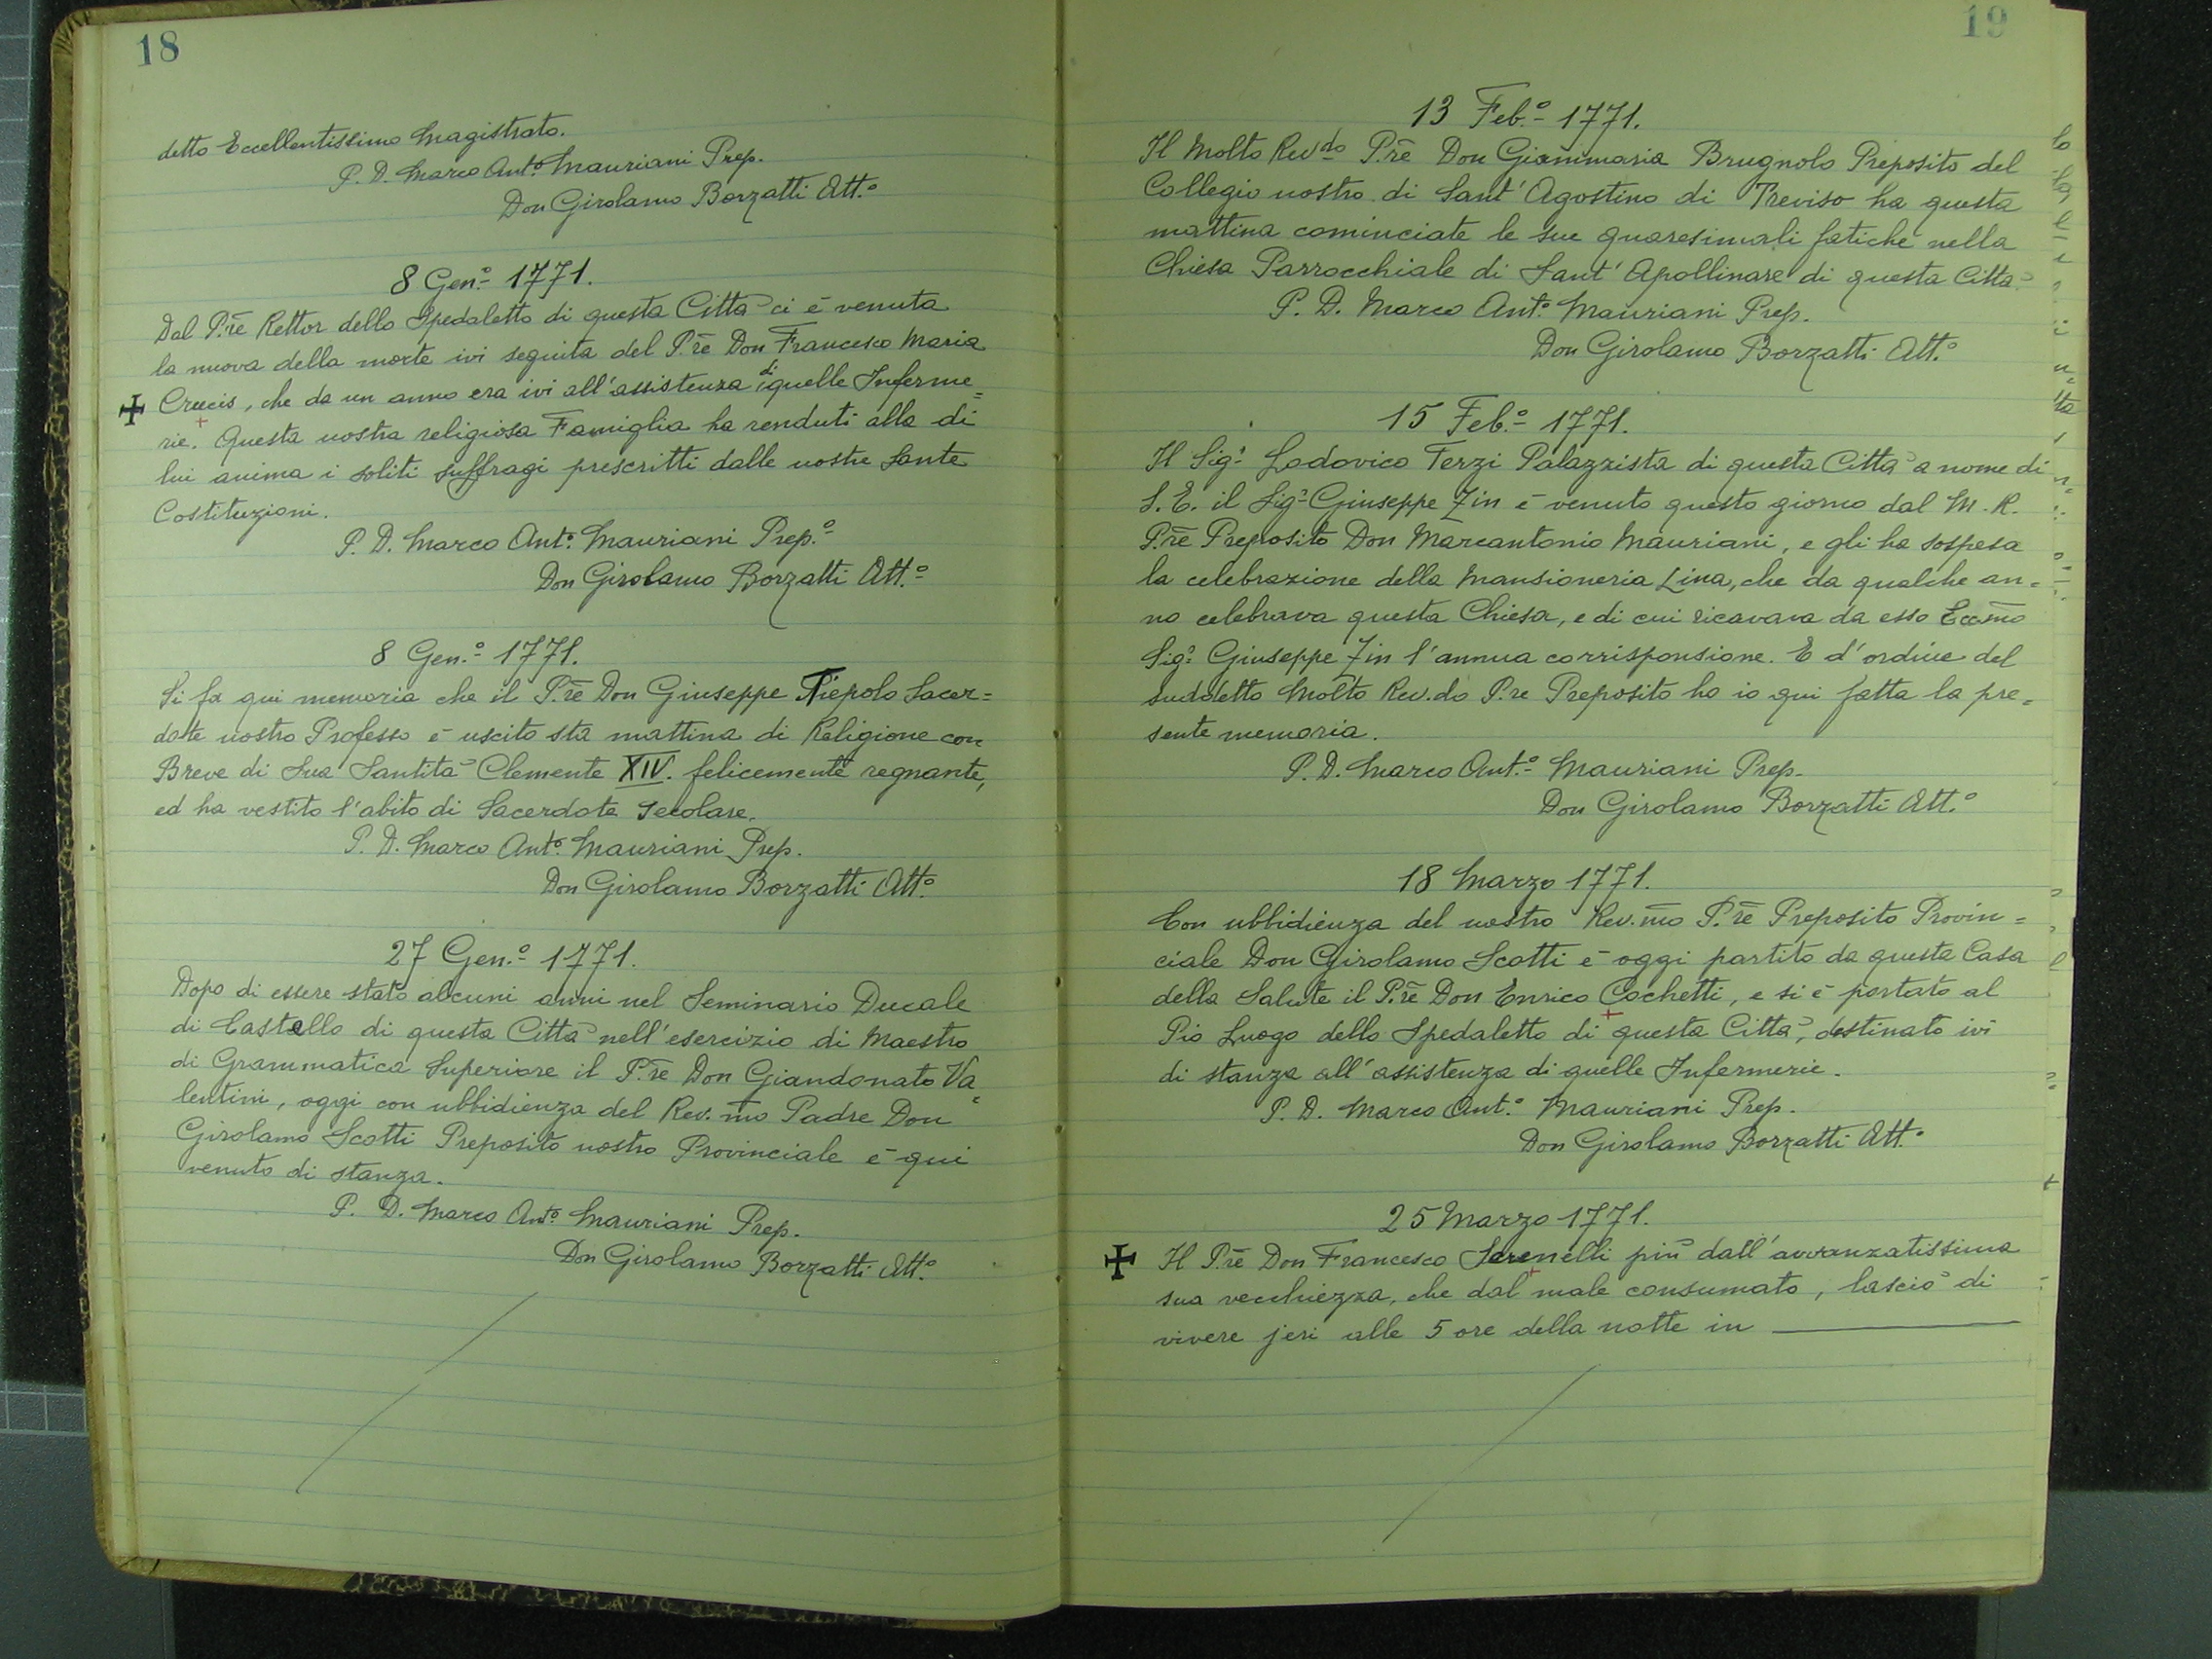 18
detto Eccellentissimo Magistrato.
P. D. Marco Ant.º Mauriani Prep.
Don Girolamo Borzatti Att.º
8 Gen.º 1771.
Dal P.re Rettor dello Spedaletto di questa Città ci è venuta
la nuova della morte ivi seguita del P.re Don Francesco Maria
✠ Crucis, che da un anno era ivi all'assistenza di quelle Inferme=
rie. Questa nostra religiosa Famiglia ha renduti alla di
lui anima i soliti suffragi prescritti dalle nostre Sante
Costituzioni.
P. D. Marco Ant.º Mauriani Prep.º
Don Girolamo Borzatti Att.º
8 Gen.º 1771.
Si fa qui memoria che il P.re Don Giuseppe Tiepolo Sacer=
dote nostro Professo è uscito sta mattina di Religione con
Breve di Sua Santità Clemente XIV. felicemente regnante,
ed ha vestito l'abito di Sacerdote secolare.
P. D. Marco Ant.º Mauriani Prep.
Don Girolamo Borzatti Att.º
27 Gen.º 1771.
Dopo di essere stato alcuni anni nel Seminario Ducale
di Castello di questa Città nell'esercizio di Maestro
di Grammatica Superiore il P.re Don Giandonato Va=
lentini, oggi con ubbidienza del Rev.mo Padre Don
Girolamo Scotti Preposito nostro Provinciale è qui
venuto di stanza.
P. D. Marco Ant.º Mauriani Prep.
Don Girolamo Borzatti Att.º
19
13 Feb.º 1771.
Il Molto Rev.do P.re Don Gianmaria Brugnolo Preposito del
Collegio nostro di Sant'Agostino di Treviso ha questa
mattina cominciate le sue quaresimali fatiche nella
Chiesa Parrocchiale di Sant'Apollinare di questa Città.
P. D. Marco Ant.º Mauriani Prep.
Don Girolamo Borzatti Att.º
15 Feb.º 1771.
Il Sig.r Lodovico Terzi Palazzista di questa Città a nome di
S. E. il Sig.r Giuseppe Zin è venuto questo giorno dal M. R.
P.re Preposito Don Marcantonio Mauriani, e gli ha sospesa
la celebrazione della Mansioneria Zina, che da qualche an=
no celebrava questa Chiesa, e di cui ricavava da esso Eccmo
Sig.r Giuseppe Zin l'annua corrisponsione. E d'ordine del
suddetto Molto Rev.do P.re Preposito ho io qui fatta la pre=
sente memoria.
P. D. Marco Ant.º Mauriani Prep.
Don Girolamo Borzatti Att.º
18 Marzo 1771.
Con ubbidienza del nostro Rev.mo P.re Preposito Provin=
ciale Don Girolamo Scotti è oggi partito da questa Casa
della Salute il P.re Don Enrico Cochetti, e si è portato al
Pio Luogo dello Spedaletto di questa Città, destinato ivi
di stanza all'assistenza di quelle Infermerie.
P. D. Marco Ant.º Mauriani Prep.
Don Girolamo Borzatti Att.º
25 Marzo 1771.
✠ Il P.re Don Francesco Serenelli più dall'avvanzatissima
sua vecchiezza, che dal male consumato, lasciò di
vivere jeri alle 5 ore della notte in